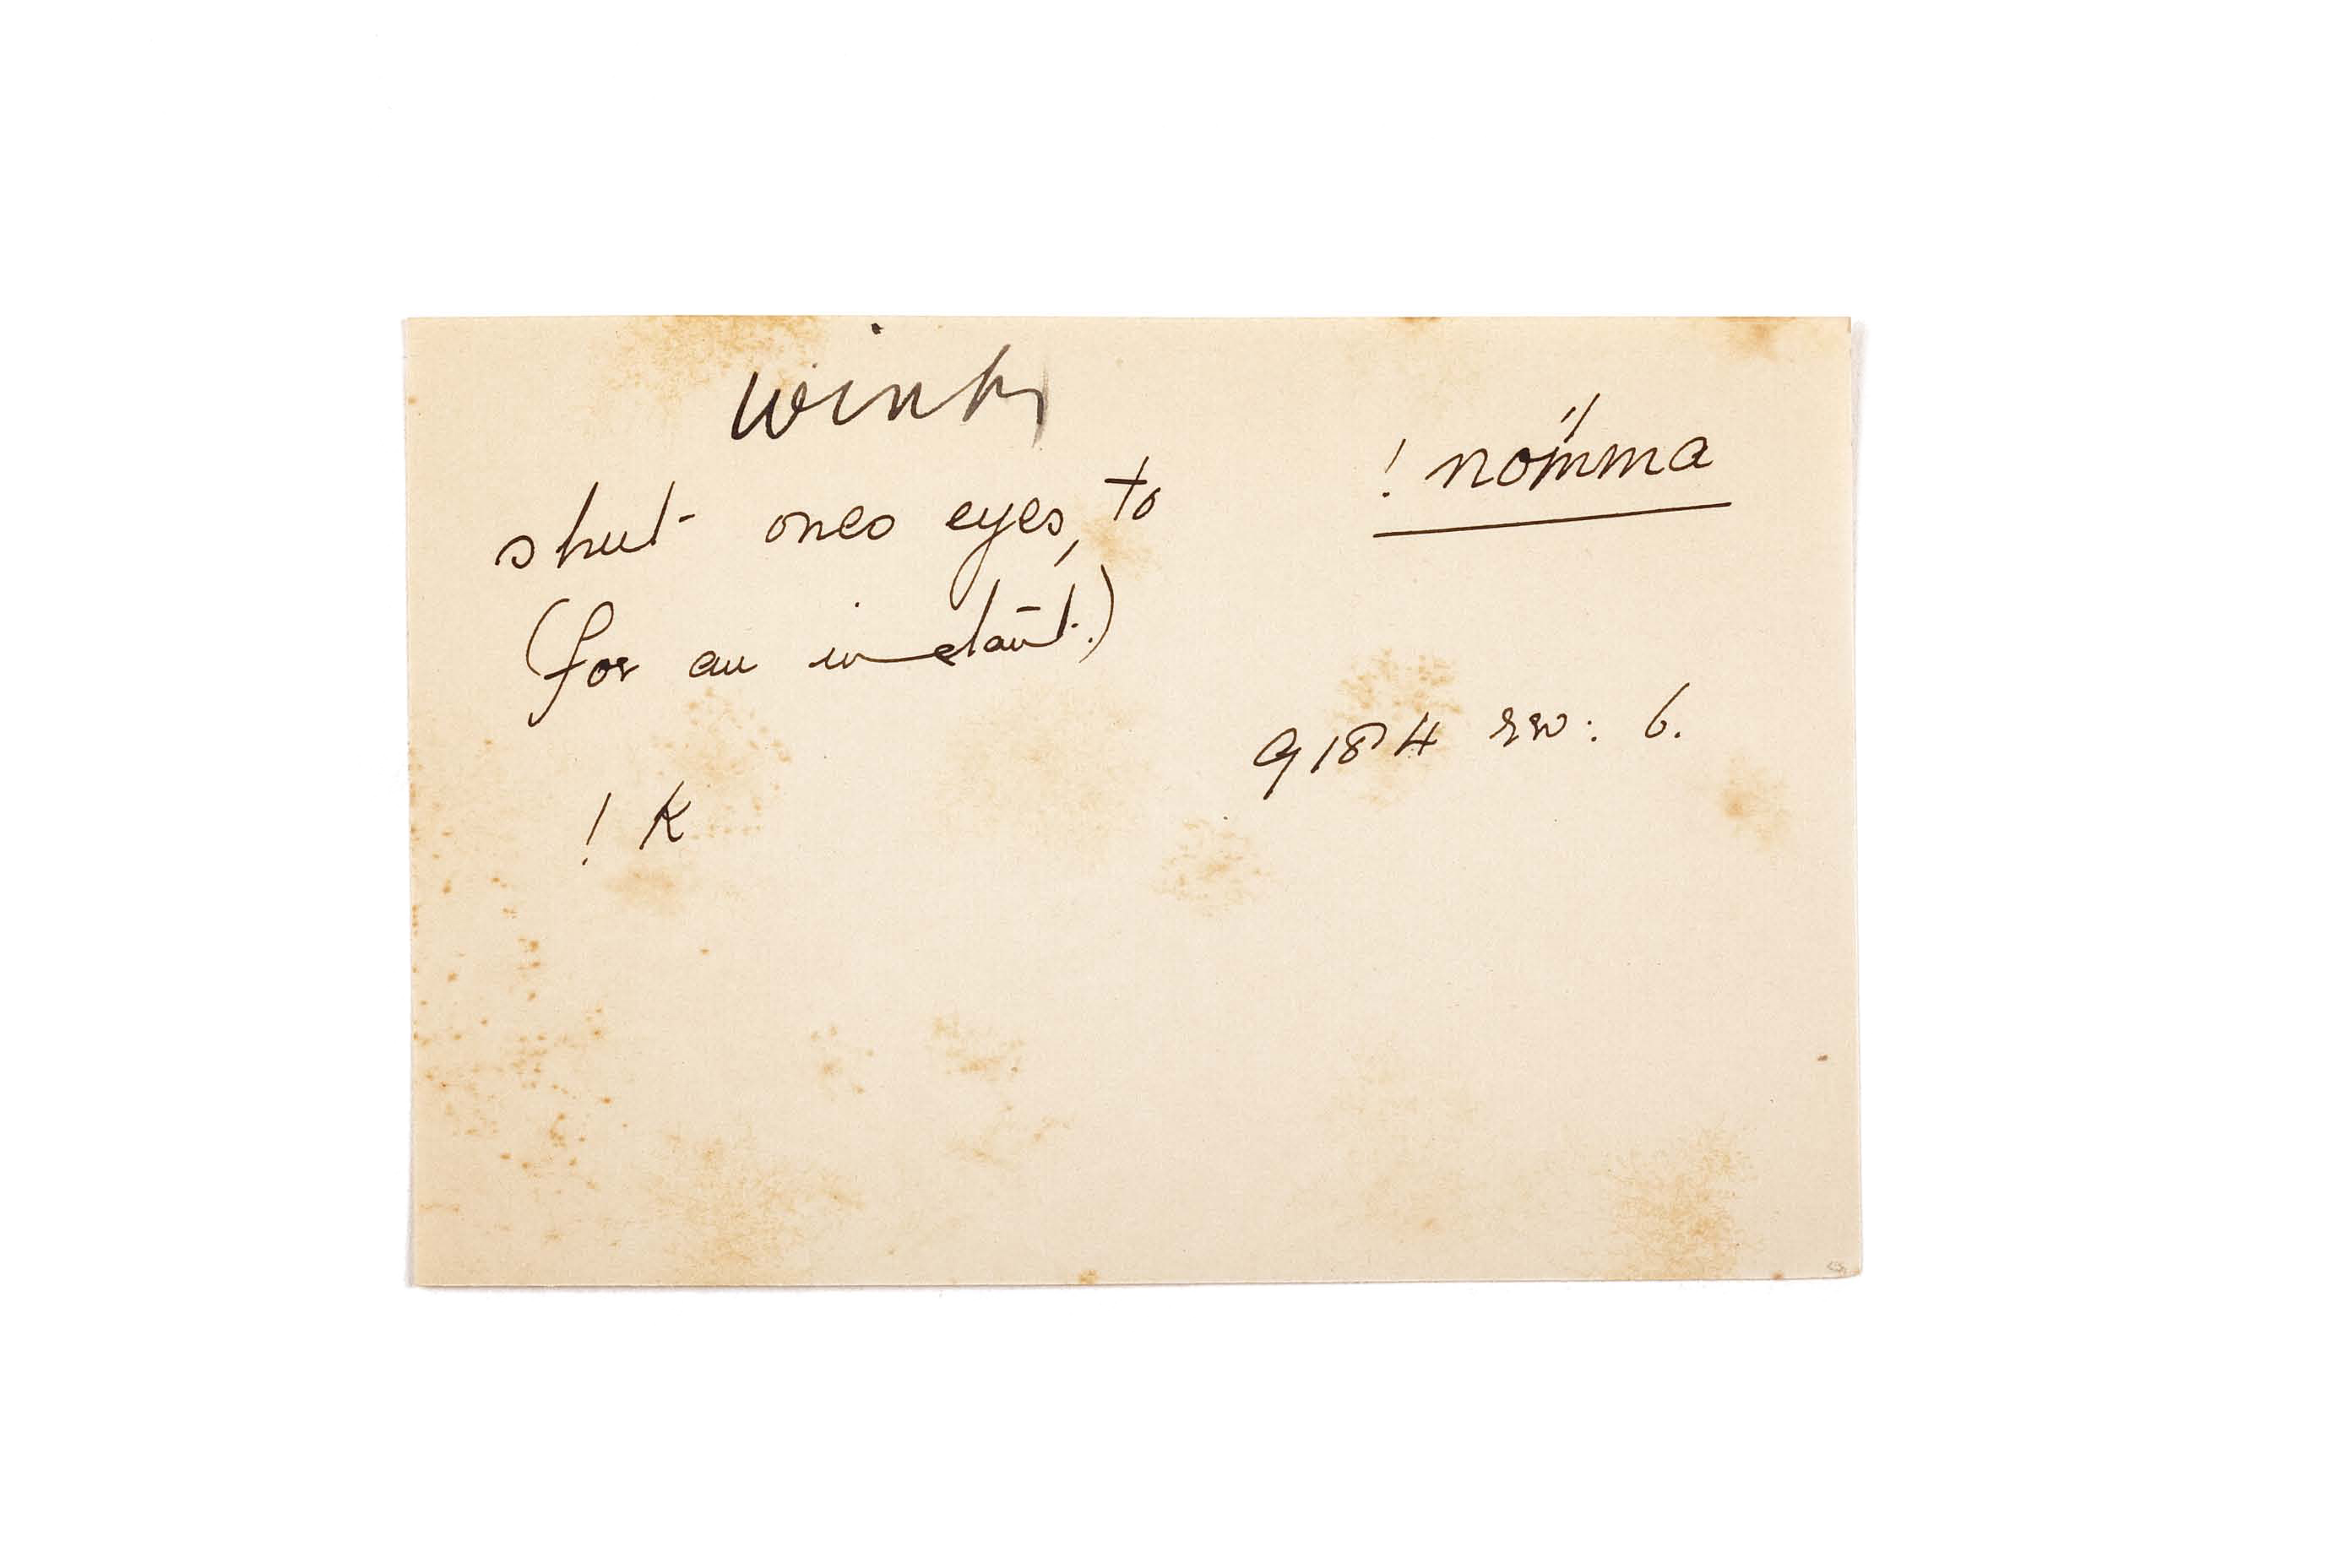 wink
shut ones eyes, to
! nomma
(for an instant.)
9184 rev: 6.
! K